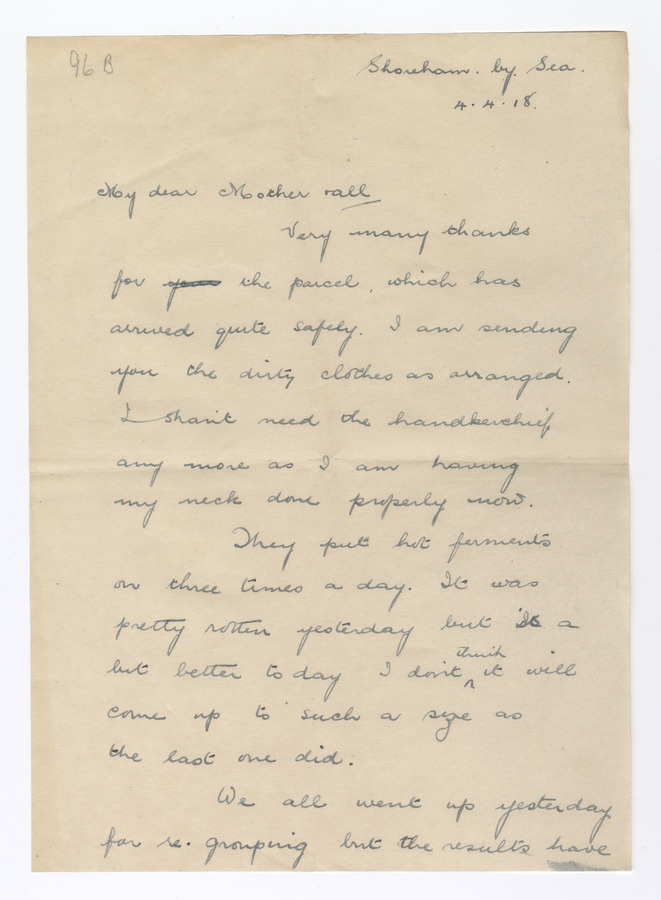 96 B
Shoreham. by. Sea.
4. 4. 18.
My dear Mother & all
Very many thanks
for you the parcel, which has
arrived quite safely. I am sending
you the dirty clothes as arranged.
I shan't need the handkerchief
any more as I am having
my neck done properly now.
They put hot ferments
on three times a day. It was
pretty rotten yesterday but is a
bit better today I don't think it will
come up to such a size as
the last one did.
We all went up yesterday
for re-grouping but the results have